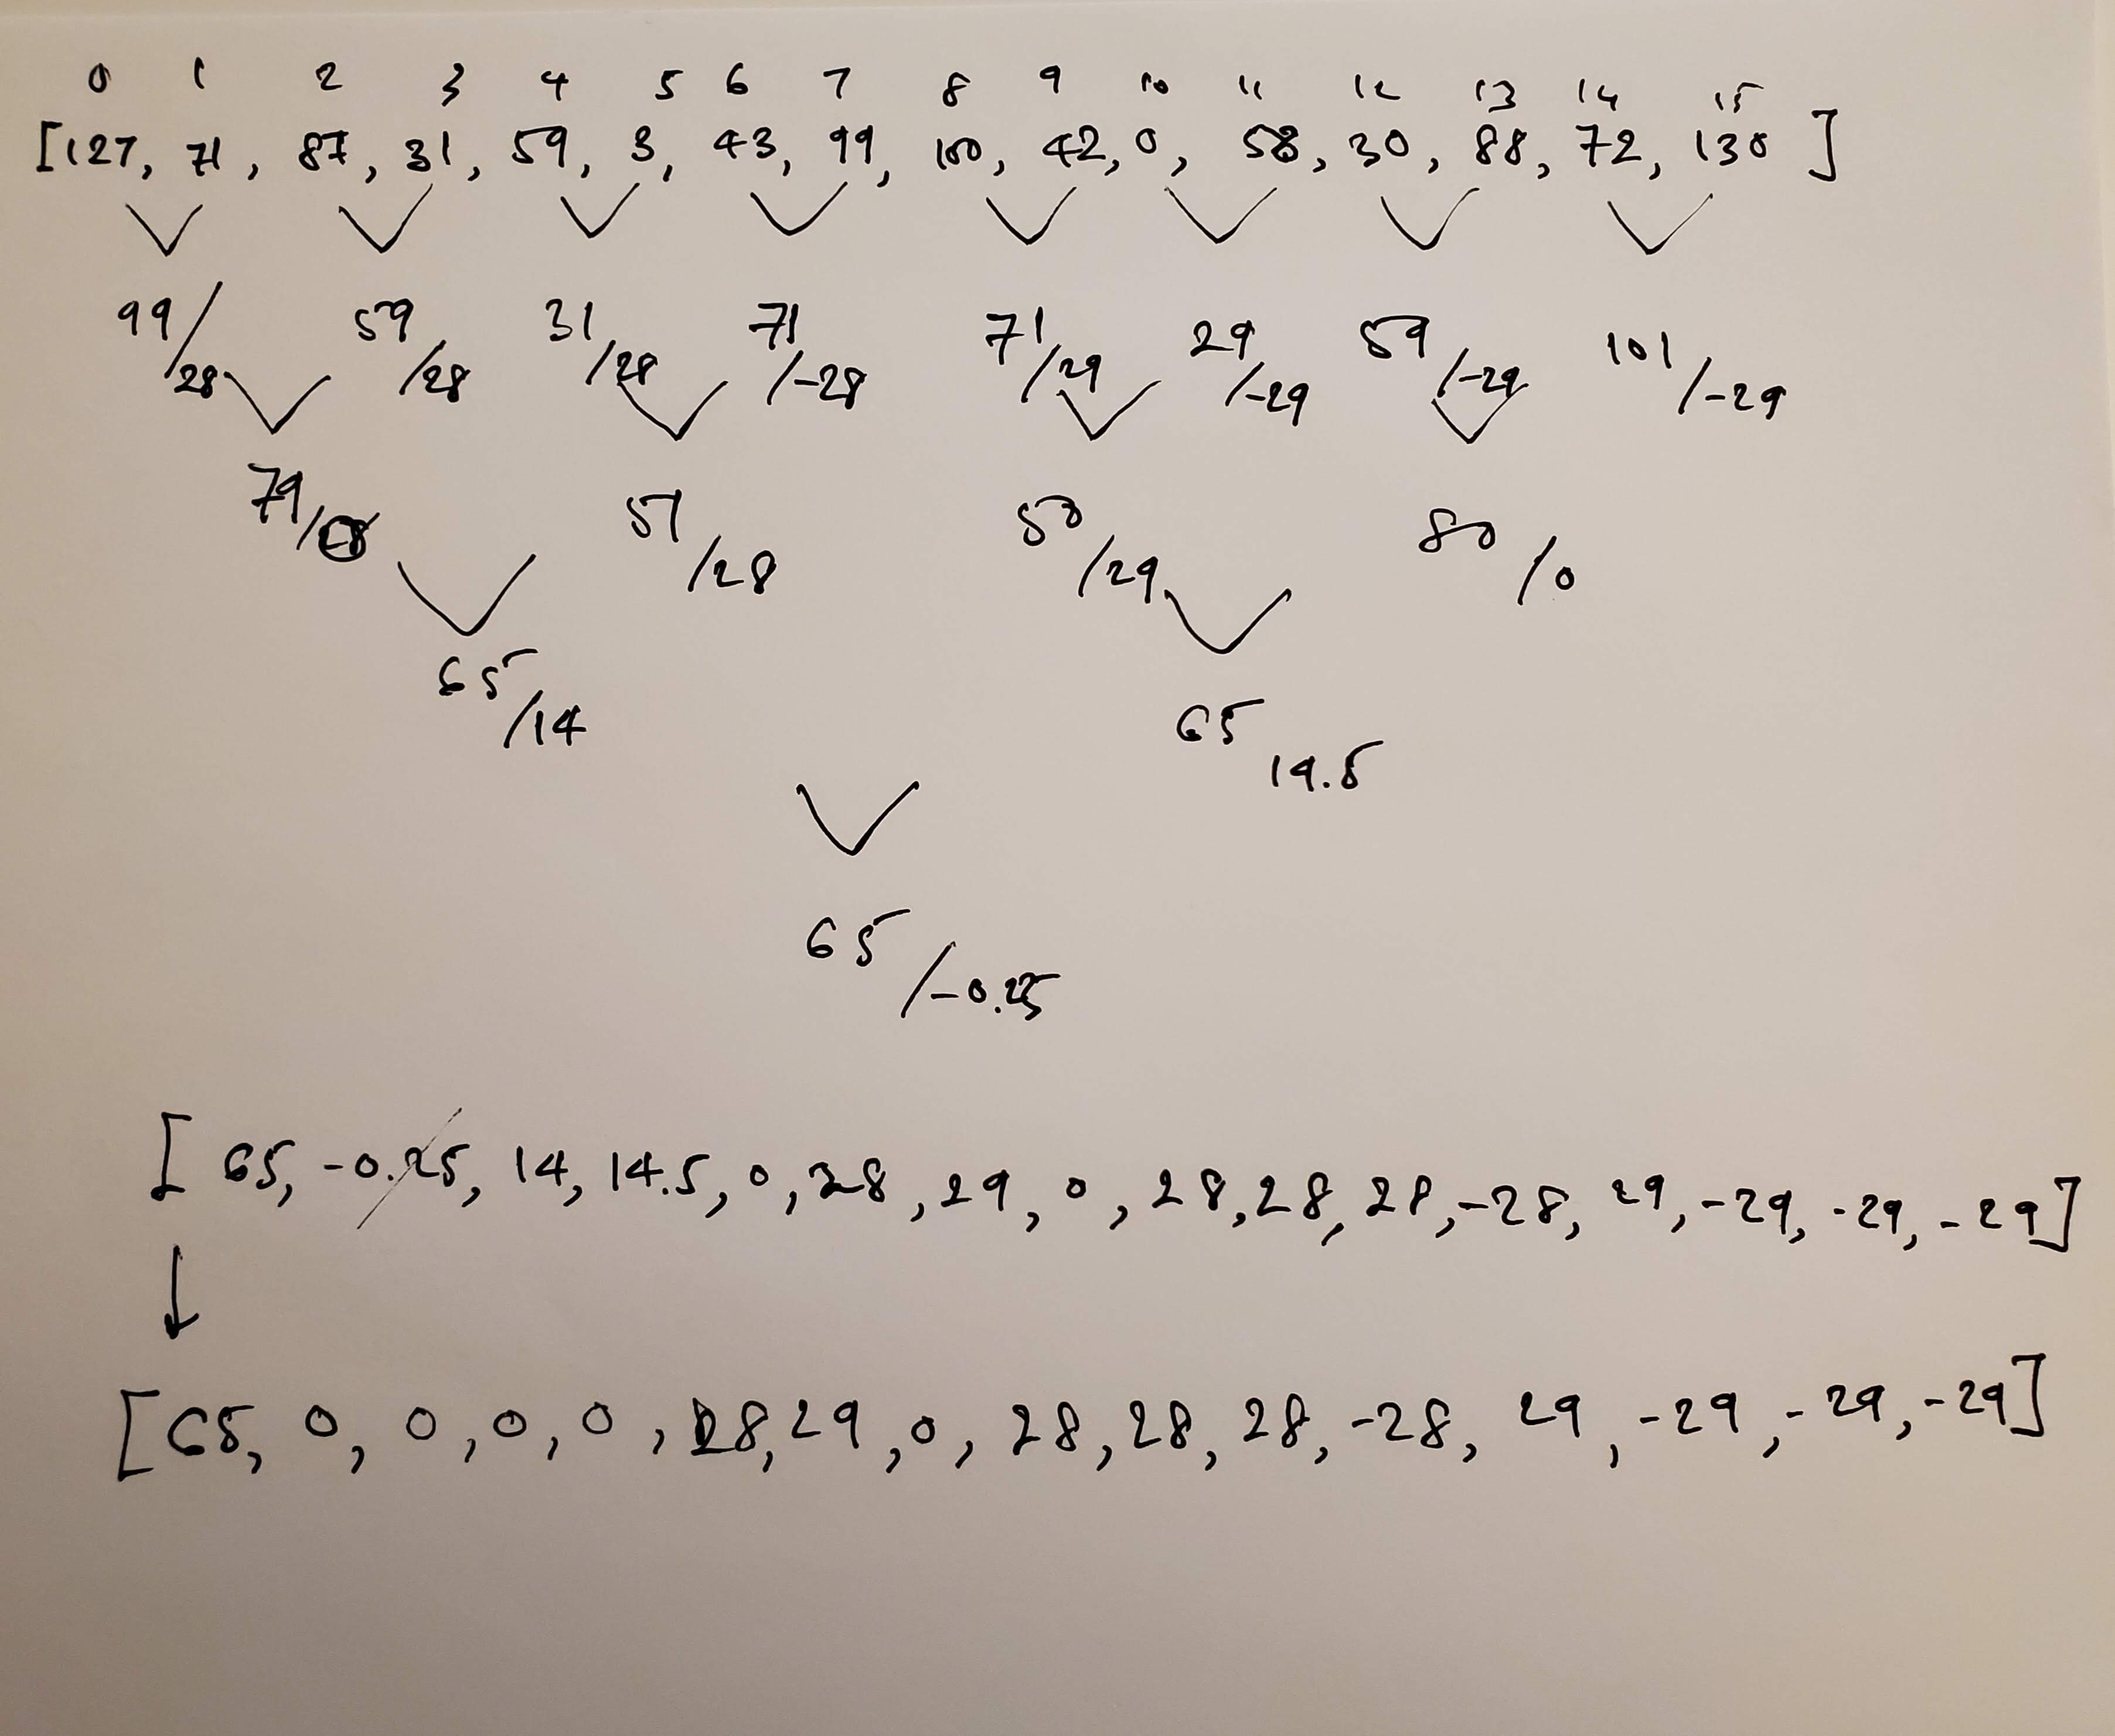 0 1 2 3 4 5 6 7 8 9 10 11 12 13 14 15
[127, 71, 87, 31, 59, 3, 43, 99, 100, 42, 0, 58, 30, 88, 72, 130]
99/28 59/28 31/28 71/-28 71/29 29/-29 59/-29 101/-29
79/ 51/28 50/29 80/0
65/14 65 14.5
65/-0.25
[65, -0.25, 14, 14.5, 0, 28, 29, 0, 28, 28, 28, -28, 29, -29, -29, -29]
↓
[65, 0, 0, 0, 0, 28, 29, 0, 28, 28, 28, -28, 29, -29, -29, -29]